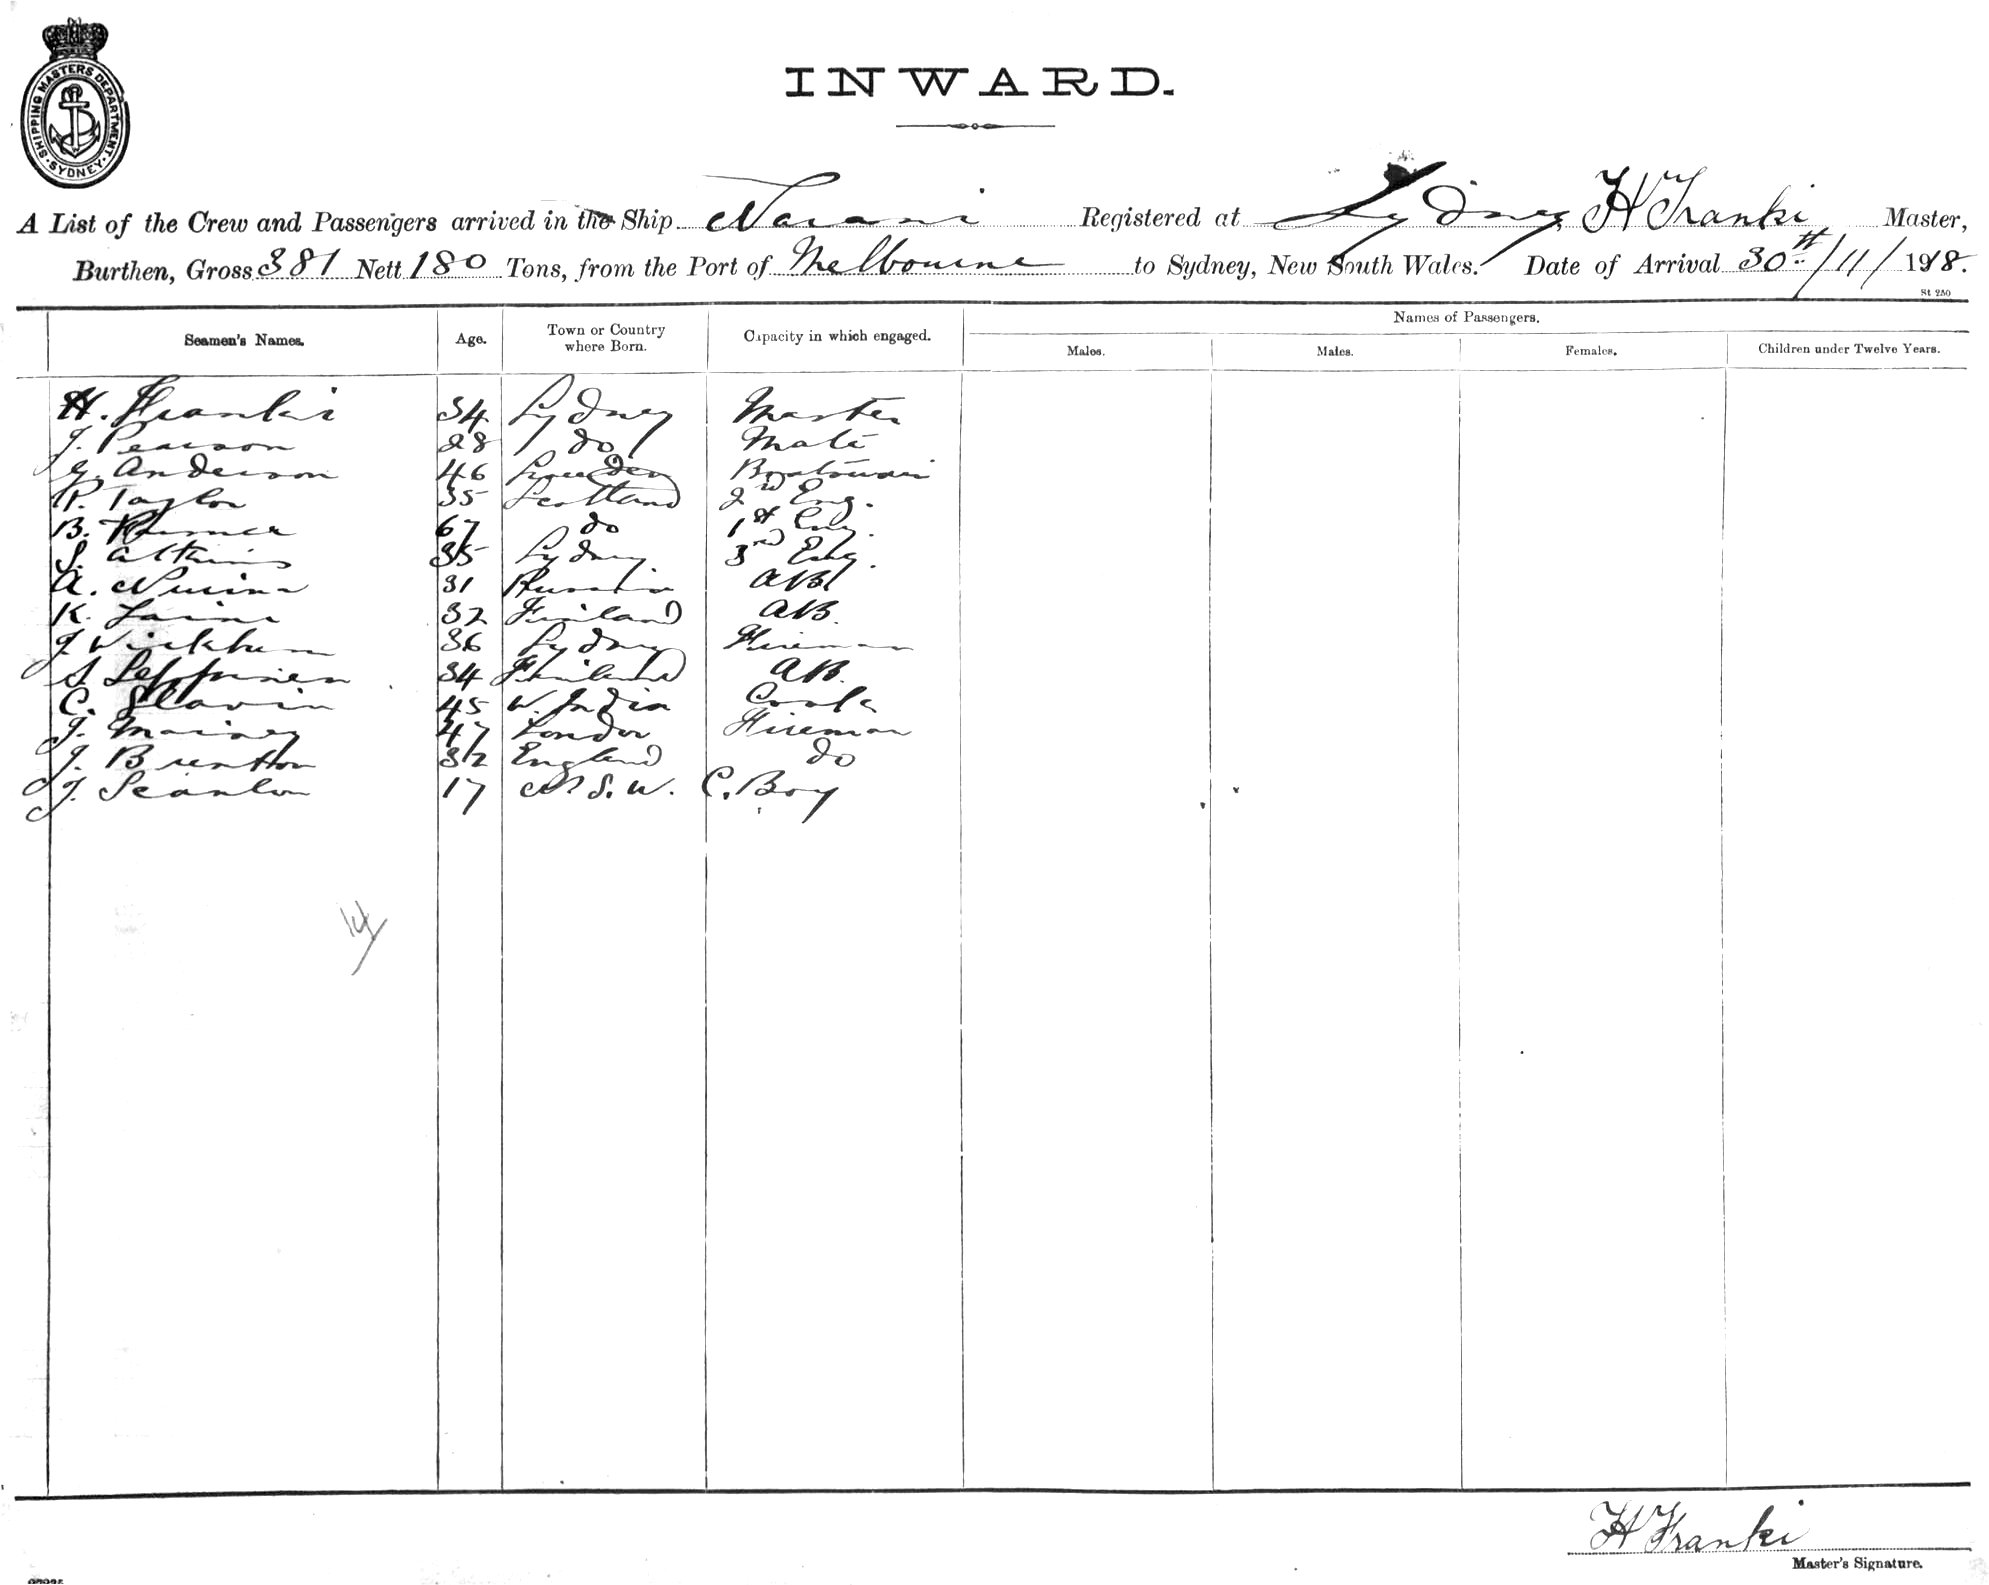 SHIPPING MASTERS DEPARTMENT. SYDNEY.
INWARD.
A List of the Crew and Passengers arrived in the Ship Narani Registered at Sydney H Franki Master,
Burthen, Gross 381 Nett 180 Tons, from the Port of Melbourne to Sydney, New South Wales. Date of Arrival 30th/11/1918.
St 250
Seamen's Names. Age. Town or Country where Born. Capacity in which engaged. Names of Passengers.
Males. Males. Females. Children under Twelve Years.
H. Franki 34 Sydney Master
J. Pearson 28 do Mate
G. Anderson 46 Sweden Boatswain
R. Taylor 35 Scotland 2nd Eng.
B. 67 do 1st Eng.
S. Atkins 35 Sydney 3rd Eng.
A. 31 Russia AB
K. Laine 32 Finland AB.
J Wickham 36 Sydney Fireman
S Leppinen 34 Finland AB.
C. Slavin 45 W. India Cook
J. Mainey 47 London Fireman
J. Brenton 32 England do
J. Scanlon 17 N.S.W. C. Boy
14
H Franki
Master's Signature.